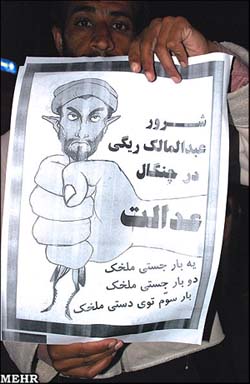 شرور
عبدالمالک ریگی
در چنگال
عدالت
یه بار جستی ملخک
دو بار جستی ملخک
بار سوّم توی دستی ملخک
MEHR